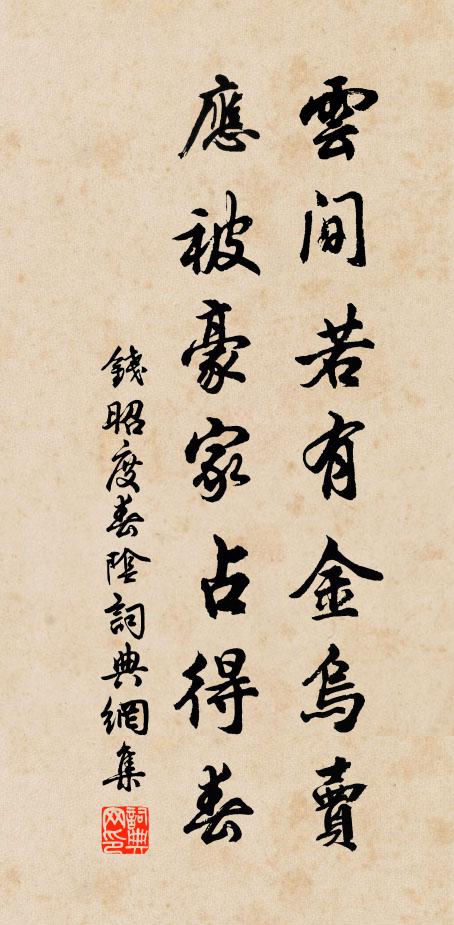 雲間若有金烏賣
應被豪家占得春
錢昭度春陰詞典網集
詞典网印